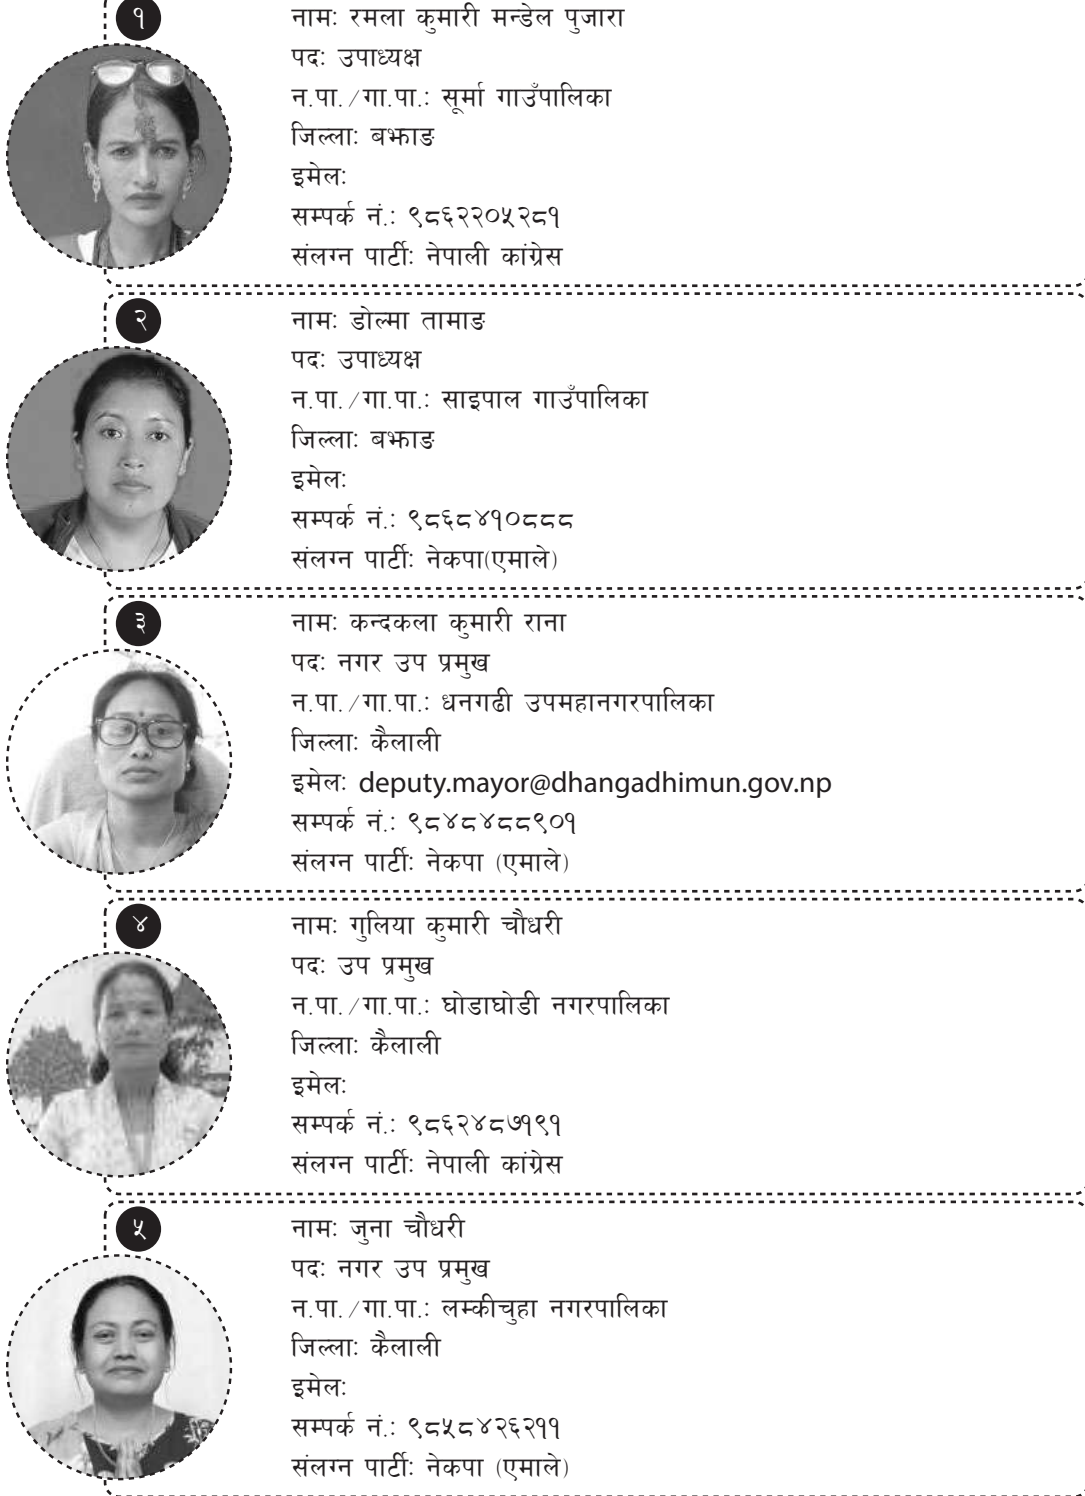 १
नामः रमला कुमारी मन्डेल पुजारा
पदः उपाध्यक्ष
न.पा./गा.पा.: सूर्मा गाउँपालिका
जिल्लाः बझाङ
इमेलः
सम्पर्क नं.: ९८६२२०५२८१
संलग्न पार्टीः नेपाली कांग्रेस
२
नामः डोल्मा तामाङ
पदः उपाध्यक्ष
न.पा./गा.पा.: साइपाल गाउँपालिका
जिल्लाः बझाङ
इमेलः
सम्पर्क नं.: ९८६८४१०८८८
संलग्न पार्टीः नेकपा(एमाले)
३
नामः कन्दकला कुमारी राना
पदः नगर उप प्रमुख
न.पा./गा.पा.: धनगढी उपमहानगरपालिका
जिल्लाः कैलाली
इमेलः deputy.mayor@dhangadhimun.gov.np
सम्पर्क नं.: ९८४८४८८९०१
संलग्न पार्टीः नेकपा (एमाले)
४
नामः गुलिया कुमारी चौधरी
पदः उप प्रमुख
न.पा./गा.पा.: घोडाघोडी नगरपालिका
जिल्लाः कैलाली
इमेलः
सम्पर्क नं.: ९८६२४८७१९१
संलग्न पार्टीः नेपाली कांग्रेस
५
नामः जुना चौधरी
पदः नगर उप प्रमुख
न.पा./गा.पा.: लम्कीचुहा नगरपालिका
जिल्लाः कैलाली
इमेलः
सम्पर्क नं.: ९८५८४२६२११
संलग्न पार्टीः नेकपा (एमाले)